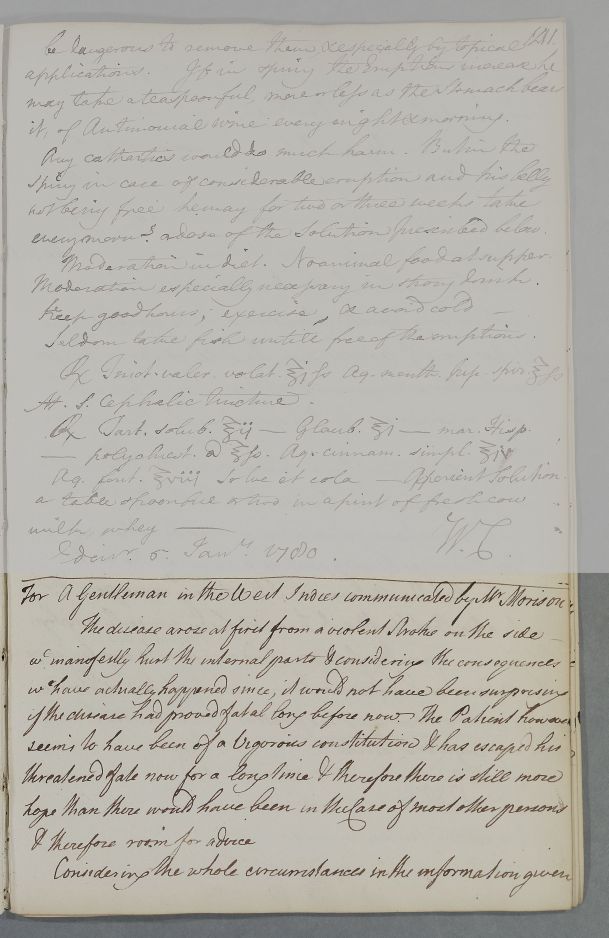 be dangerous to remove them, & especially by topical 141.
applications. If in spring the Eruption increase he
may take a teaspoonful, more or less as the Stomach bears
it, of Antimonial wine every night & morning.
Any cathartics would do much harm. But in the
Spring in case of considerable eruption and his belly
not being free he may for two or three weeks take
every morng. a dose of the Solution prescribed below.
Moderation in diet. No animal food at supper.
Moderation especially necessary in strong drink.
Keep good hours; exercise, & avoid cold —
Seldom take fish untill free of the eruptions.
℞ Tinct. valer. volat. ℥j fs Aq. menth. pip. spir. ℥fs
M. S. Cephalic tincture.
℞ Tart. solub. ℥ij — Glaub. ℥j — mar. Hisp.
— polychrest. a ℥fs. Aq. cinnam. simpl. ℥iv
Aq. font. ℥viii Solve et cola — Aperient Solution.
a table spoonful or two in a pint of fresh cow
milk whey —
Edinr. 5. Jany. 1780. W.C.
For A Gentleman in the West Indies communicated by Mr Morison
The disease arose at first from a violent Stroke on the side
wc manifestly hurt the internal parts & considering the consequences
wc have actually happened since, it would not have been surprising
if the disease had proved fatal long before now. The Patient however
seems to have been of a Vigorous constitution & has escaped his
threatened fate now for a long time & therefore there is still more
hope than there would have been in the Case of most other persons
& therefore room for advice
Considering the whole circumstances in the information given